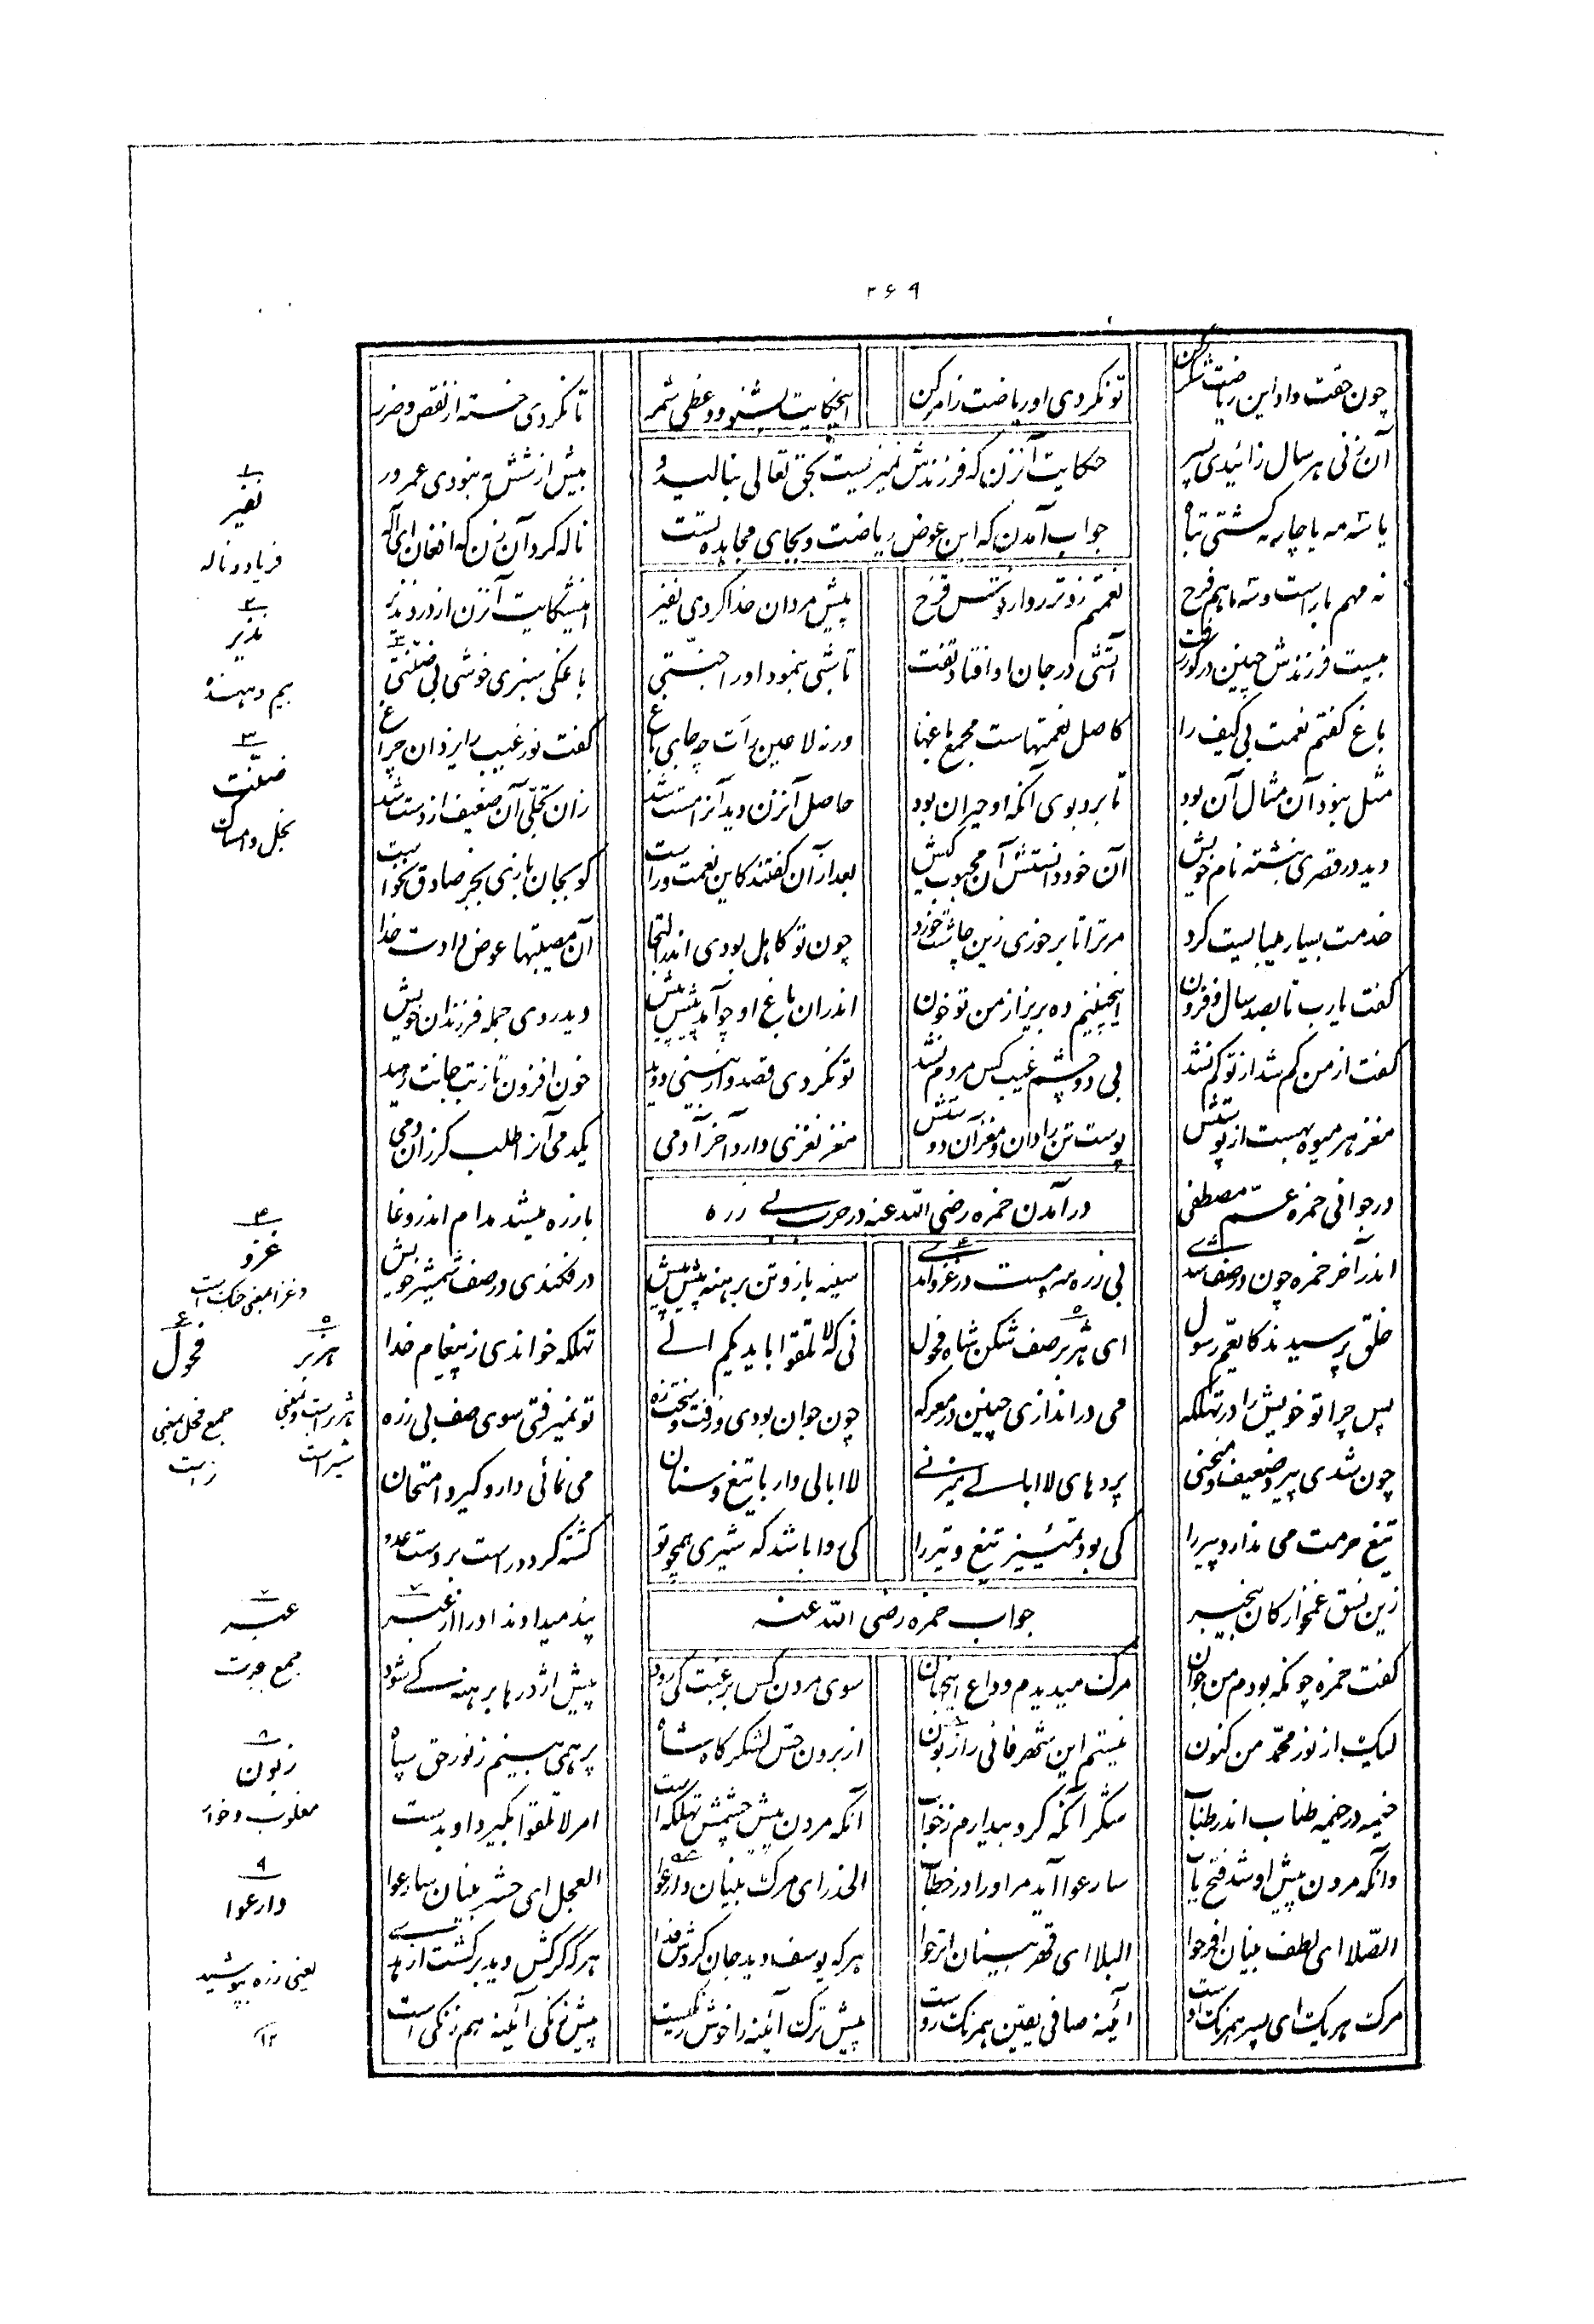 ۲۶۹
چون حقت داد این ریاضت شکر کن
تو نکردی او ریاضت زامر کن
اینحکایت بشنو و وعظی شمر
تا نکردی خسته از نقص و ضرر
حکایت آنزن که فرزندش نمیزیست بحق تعالی بنالید و
جواب آمدن که این عوض ریاضت و بجای مجاهده تست
آن زنی هر سال زائیدی پسر
بیش از شش مه نبودی عمر ور
یا سه مه یا چار مه گشتی تباه
ناله کرد آن زن که افغان ای اله
نه مهم بار است و سه ماهم فرح
نعمتم زوتر رو از قوس قزح
پیش مردان خدا کردی نفیر
اینشکایت آنزن از درد نذیر
بیست فرزندش چنین در گور رفت
آتشی در جان او افتاد تفت
تا شبی بنمود او را جنتی
باغکی سبزی خوشی بی ضنّتی
باغ گفتم نعمت بی کیف را
کاصل نعمتهاست مجمع باغها
ورنه لا عین رأت چه جای باغ
گفت نور غیب را یزدان چراغ
مثل نبود آن مثال آن بود
تا برد بوی آنکه او حیران بود
حاصل آنزن دید آنرا مست شد
زان تجلّی آن ضعیف از دست شد
دید در قصری نبشته نام خویش
آن خود دانستش آن محبوب کیش
بعد از آن گفتند کاین نعمت وراست
کو بجان بازی بجز صادق نخواست
خدمت بسیار میبایست کرد
مر ترا تا بر خوری زین چاشت خورد
چون تو کاهل بودی اندر التجا
آن مصیبتها عوض دادت خدا
گفت یارب تا بصد سال و فزون
اینچنینم ده بریز از من تو خون
اندران باغ او چو آمد پیش پیش
دید در وی جمله فرزندان خویش
گفت از من کم شد از تو کم نشد
بی دو چشم غیب کس مردم نشد
تو نکردی فصد و از بینی دوید
خون افزون تا زتب جانت رهید
مغز هر میوه بهست از پوستش
پوست تن را دان و مغز آن دوستش
مغز نغزی دارد آخر آدمی
یکدمی آنرا طلب گر زان دمی
در آمدن حمزه رضی الله عنه در حرب بی زره
در جوانی حمزه عم مصطفی
با زره میشد مدام اندر وغا
اندر آخر حمزه چون در صف شدی
بی زره سر مست در غزو آمدی
سینه باز و تن برهنه پیش پیش
در فکندی در صف شمشیر خویش
خلق پرسیدند کای عمّ رسول
ای هژبر صف شکن شاه فحول
نی که لا تلقوا بایدیکم الی
تهلکه خواندی ز پیغام خدا
پس چرا تو خویش را در تهلکه
می در اندازی چنین در معرکه
چون جوان بودی و زفت و سخت زه
تو نمیرفتی سوی صف بی زره
چون شدی پیر و ضعیف و منحنی
پرده های لا ابالی میزنی
لا ابالی وار با تیغ و سنان
می نمائی دار و گیر و امتحان
تیغ حرمت می ندارد پیر را
کی بود تمیز تیغ و تیر را
کی روا باشد که شیری همچو تو
کشته گردد راست بر دست عدو
زین نسق غمخوارگان بیخبر
پند میدادند او را از عبر
جواب حمزه رضی الله عنه
گفت حمزه چونکه بودم من جوان
مرگ میدیدم وداع اینجهان
سوی مردن کس برغبت کی رود
پیش اژدرها برهنه کی شود
لیک از نور محمّد من کنون
نیستم این شهر فانی را زبون
از برون حس لشکرگاه شاه
پر همی بینم ز نور حق سپاه
خیمه در خیمه طناب اندر طناب
شکر آنکه کرد بیدارم ز خواب
آنکه مردن پیش چشمش تهلکه است
امر لا تلقوا بگیرد او بدست
وانکه مردن پیش او شد فتح باب
سارعوا آید مر او را در خطاب
الحذر ای مرگ بینان وارعوا
العجل ای حشر بینان سارعوا
الصّلا ای لطف بینان افرحوا
البلا ای قهر بینان اترحوا
هر که یوسف دید جان کردش فدا
هر که گرگش دید برگشت از هدی
مرگ هر یک ای پسر همرنگ اوست
آئینه صافی یقین همرنگ روست
پیش ترک آئینه را خوش رنگیست
پیش زنگی آئینه هم زنگی است
۱
نفیر
فریاد و ناله
۲
نذیر
بیم دهنده
۳
ضنّت
بخل و امساک
۴
غزو
و غزا بمعنی جنگ است
۵
هژبر
هزبر است و بمعنی
شیر است
۶
فحول
جمع فحل بمعنی
نر است
۷
عبر
جمع عبرت
۸
زبون
مغلوب و خوار
۹
وارعوا
یعنی زره بپوشید
۱۲